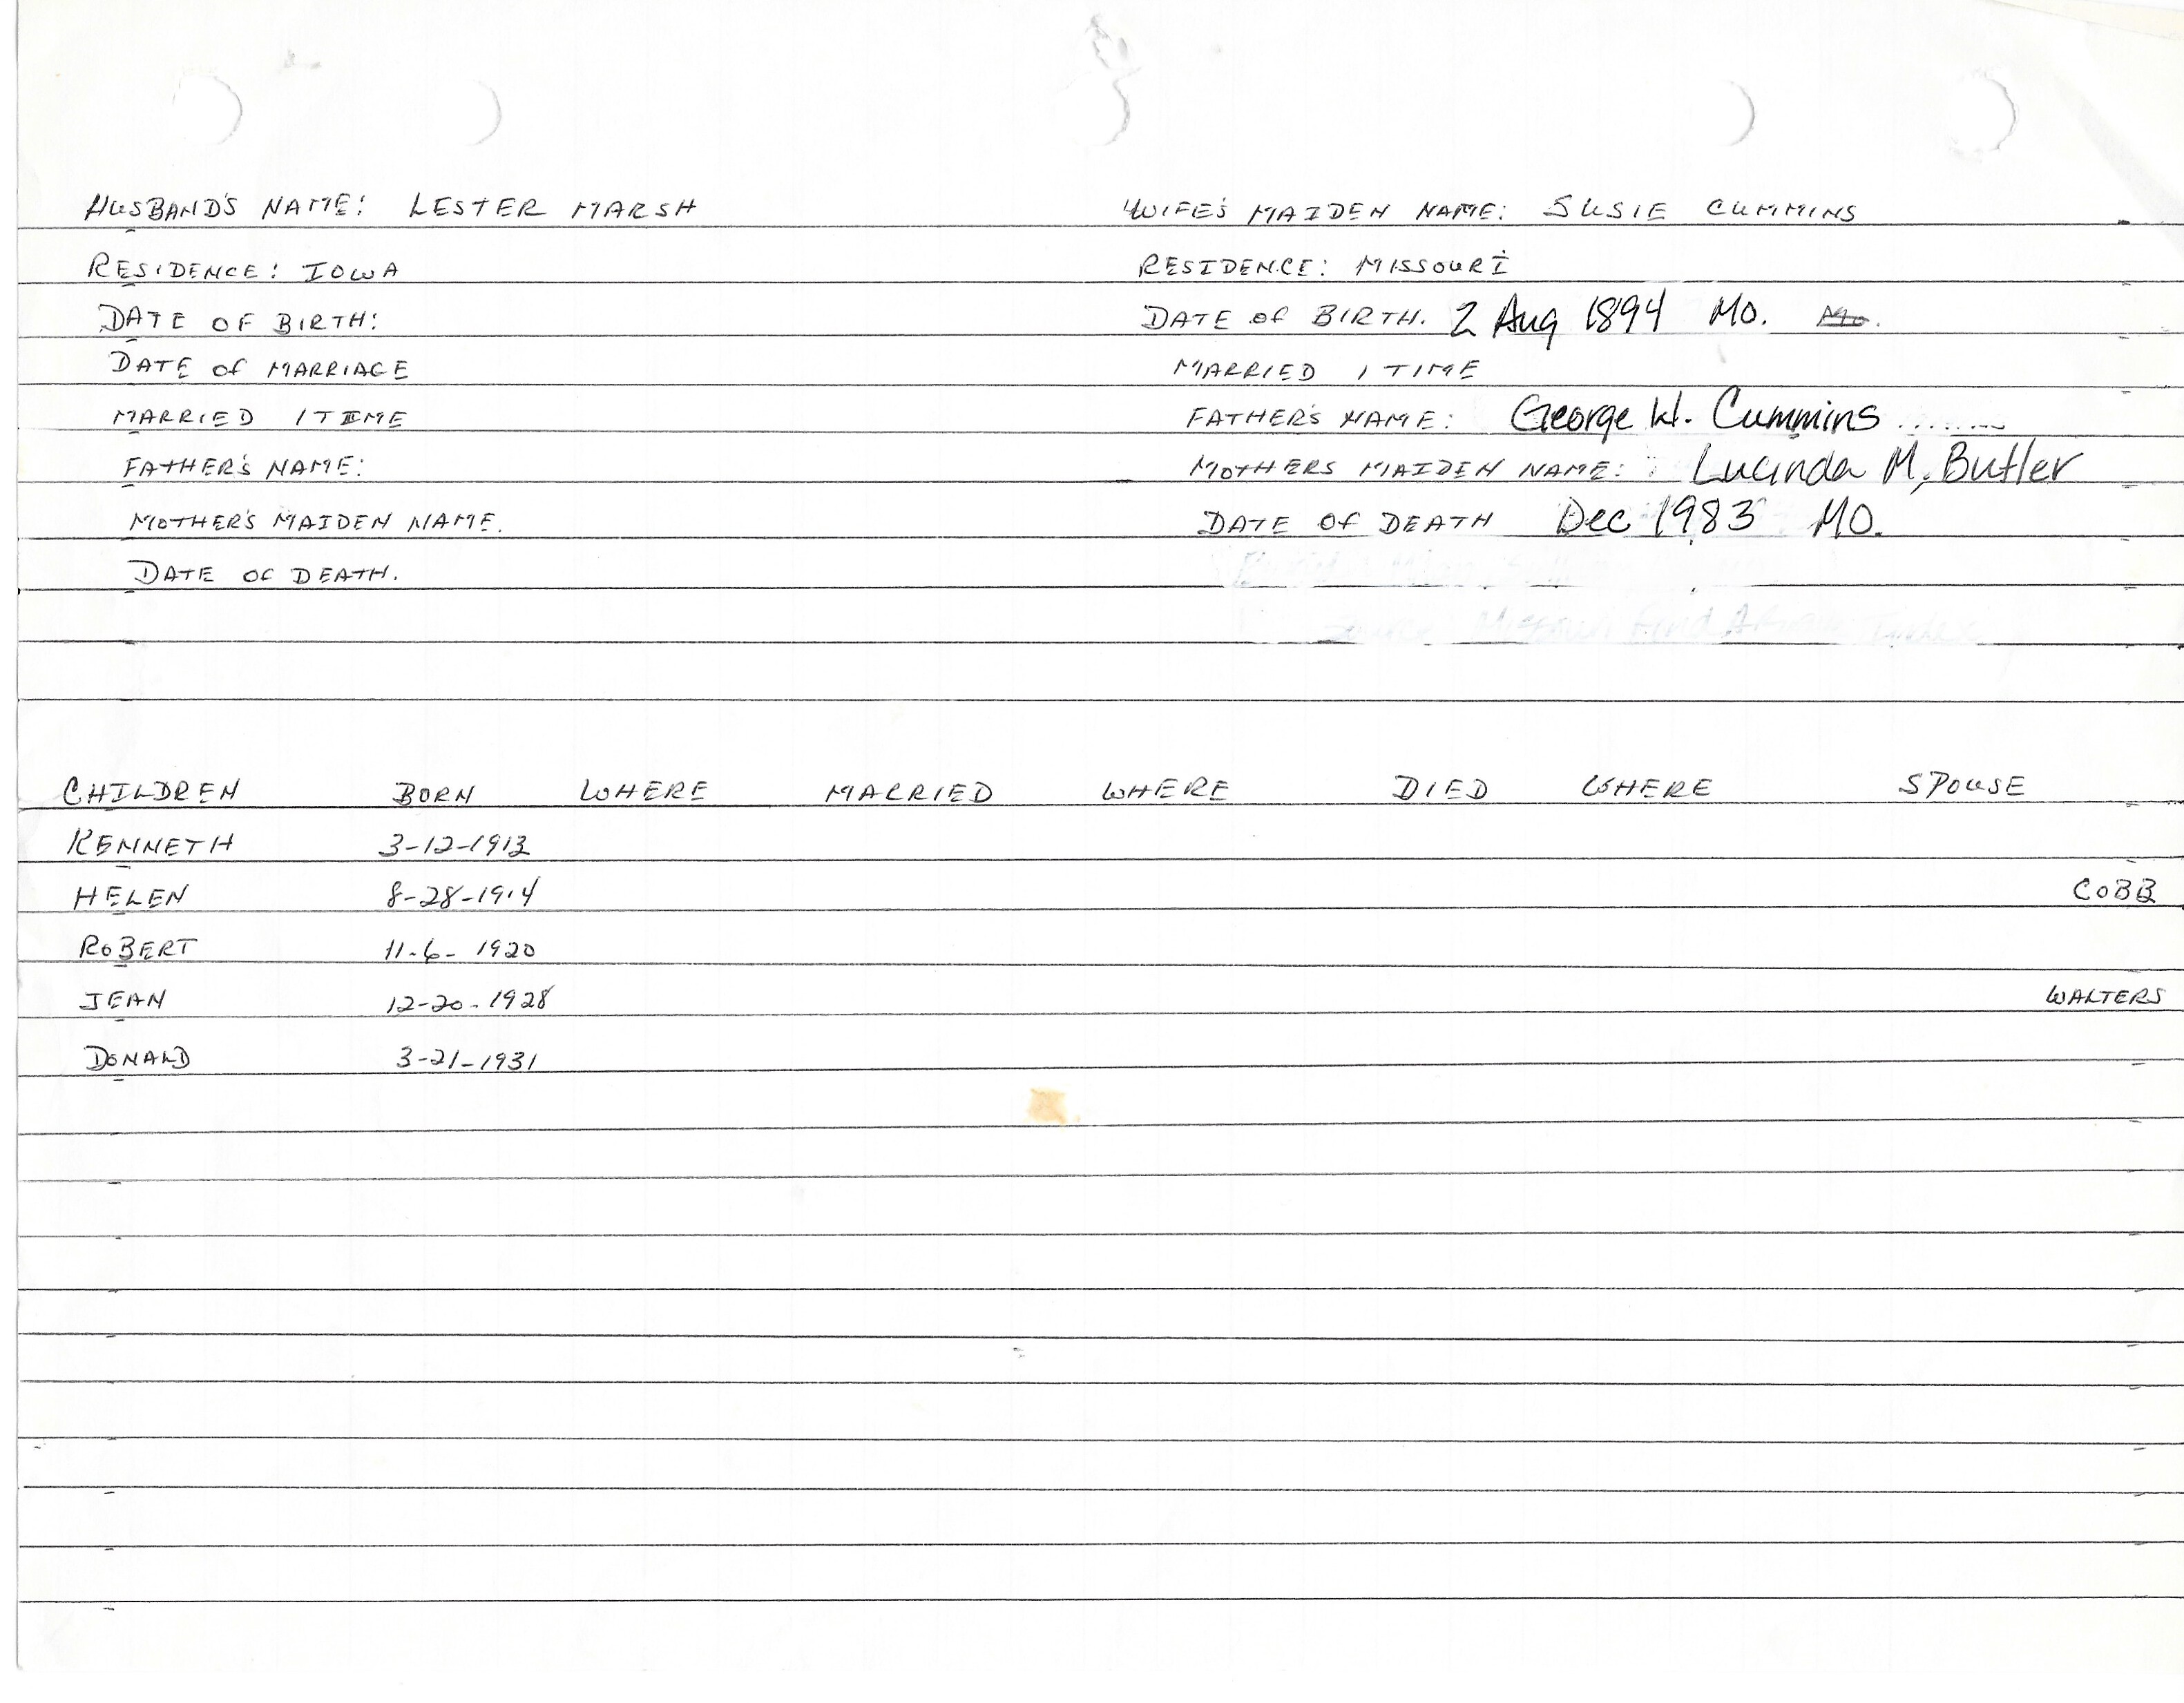 HUSBAND'S NAME: LESTER MARSH
RESIDENCE: IOWA
DATE OF BIRTH:
DATE OF MARRIAGE
MARRIED 1 TIME
FATHER'S NAME:
MOTHER'S MAIDEN NAME.
DATE OF DEATH.
WIFE'S MAIDEN NAME: SUSIE CUMMINS
RESIDENCE: MISSOURI
DATE OF BIRTH. 2 Aug 1894 MO. Mo.
MARRIED 1 TIME
FATHER'S NAME: George W. Cummins
MOTHERS MAIDEN NAME: Lucinda M. Butler
DATE OF DEATH Dec 1983 MO.
CHILDREN BORN WHERE MARRIED WHERE DIED WHERE SPOUSE
KENNETH 3-12-1913
HELEN 8-28-1914 COBB
ROBERT 11-6-1920
JEAN 12-20-1928 WALTERS
DONALD 3-21-1931